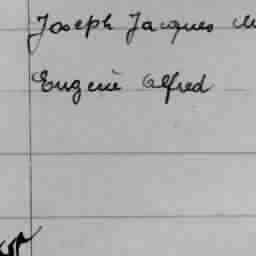 Joseph Jacques
Eugène Alfred